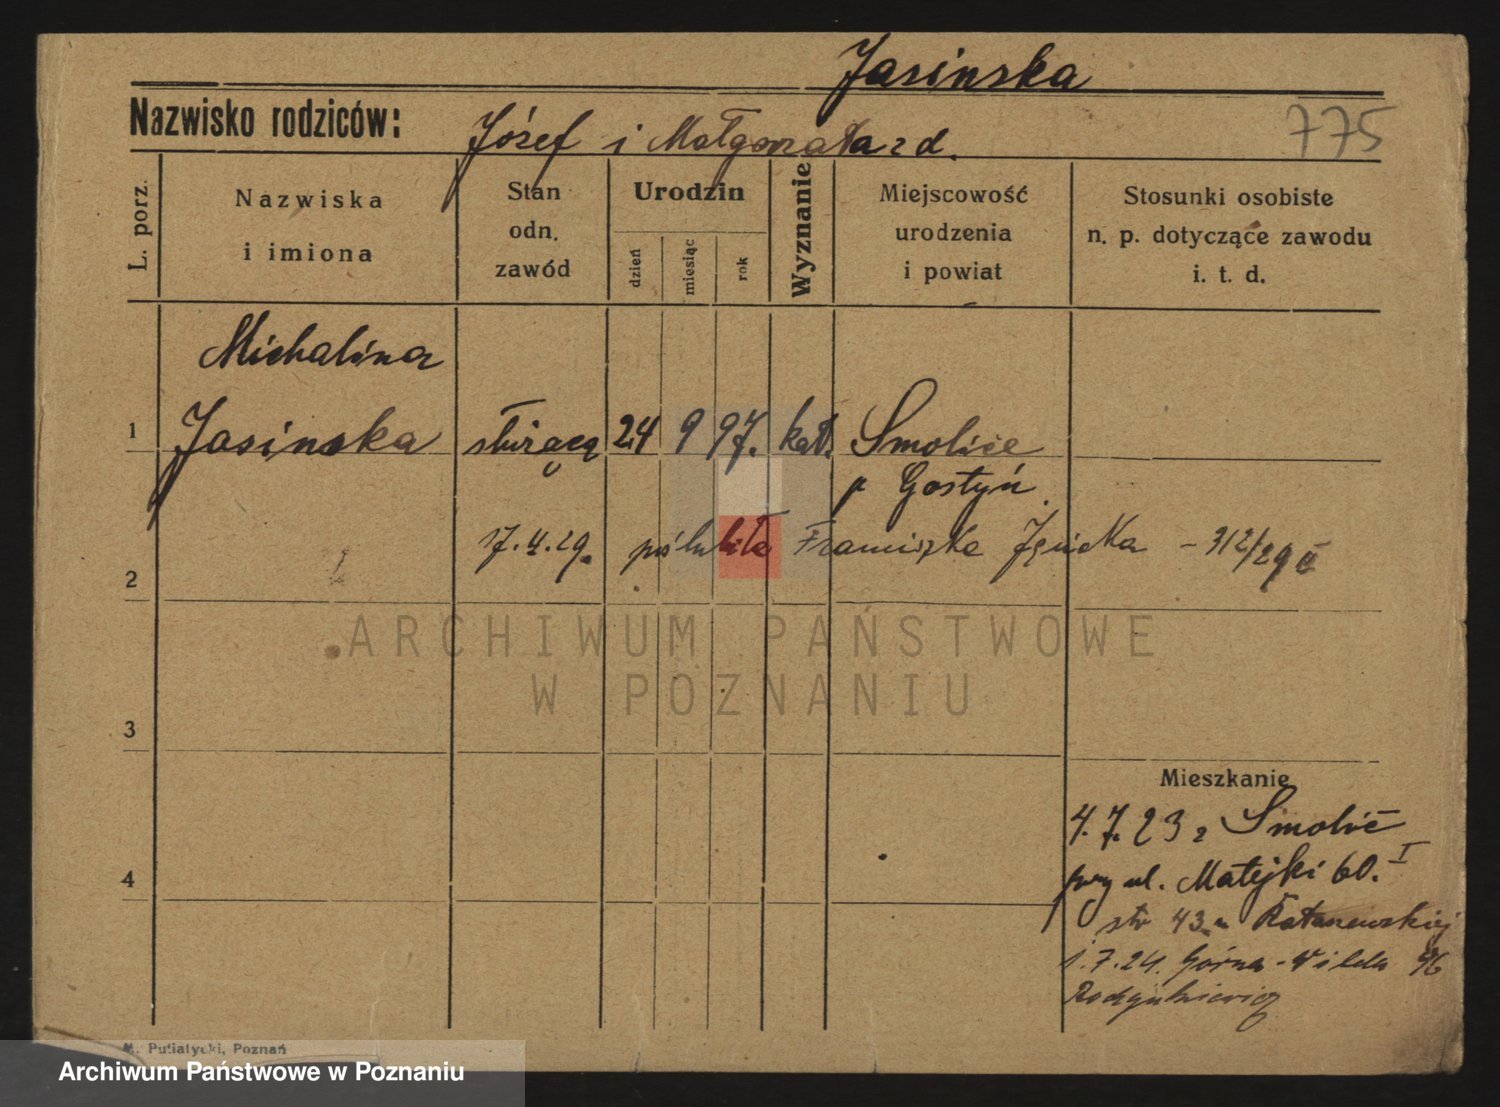 Jasinska
Nazwisko rodziców:
Józef i Małgorzata z d.
775
L. porz.
Nazwiska
i imiona
Stan
odn.
zawód
Urodzin
dzień
miesiąc
rok
Wyznanie
Miejscowość
urodzenia
i powiat
Stosunki osobiste
n. p. dotyczące zawodu
i. t. d.
Michalina
1 Jasinska służącą 24 9 97. kat. Smolice
p Gostyń
17.4.29. poślubiła Franciszka - 312/29
2
ARCHIWUM PAŃSTWOWE
W POZNANIU
3
Mieszkanie
4.7.23 z Smolic
4
przy ul. Matejki 60. I
str 43 u
1.7.24. Górna-Wilda 96
M. Putiatycki, Poznań
Archiwum Państwowe w Poznaniu